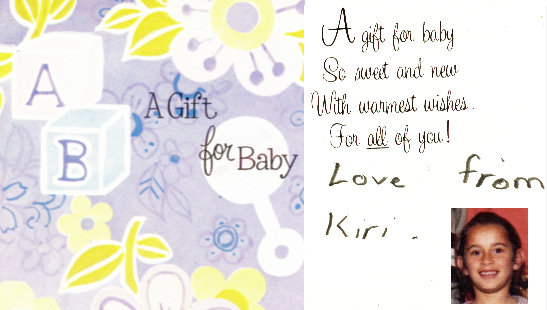 A
B
A Gift
for Baby
A gift for baby
So sweet and new
With warmest wishes
For all of you!
Love from
Kiri.